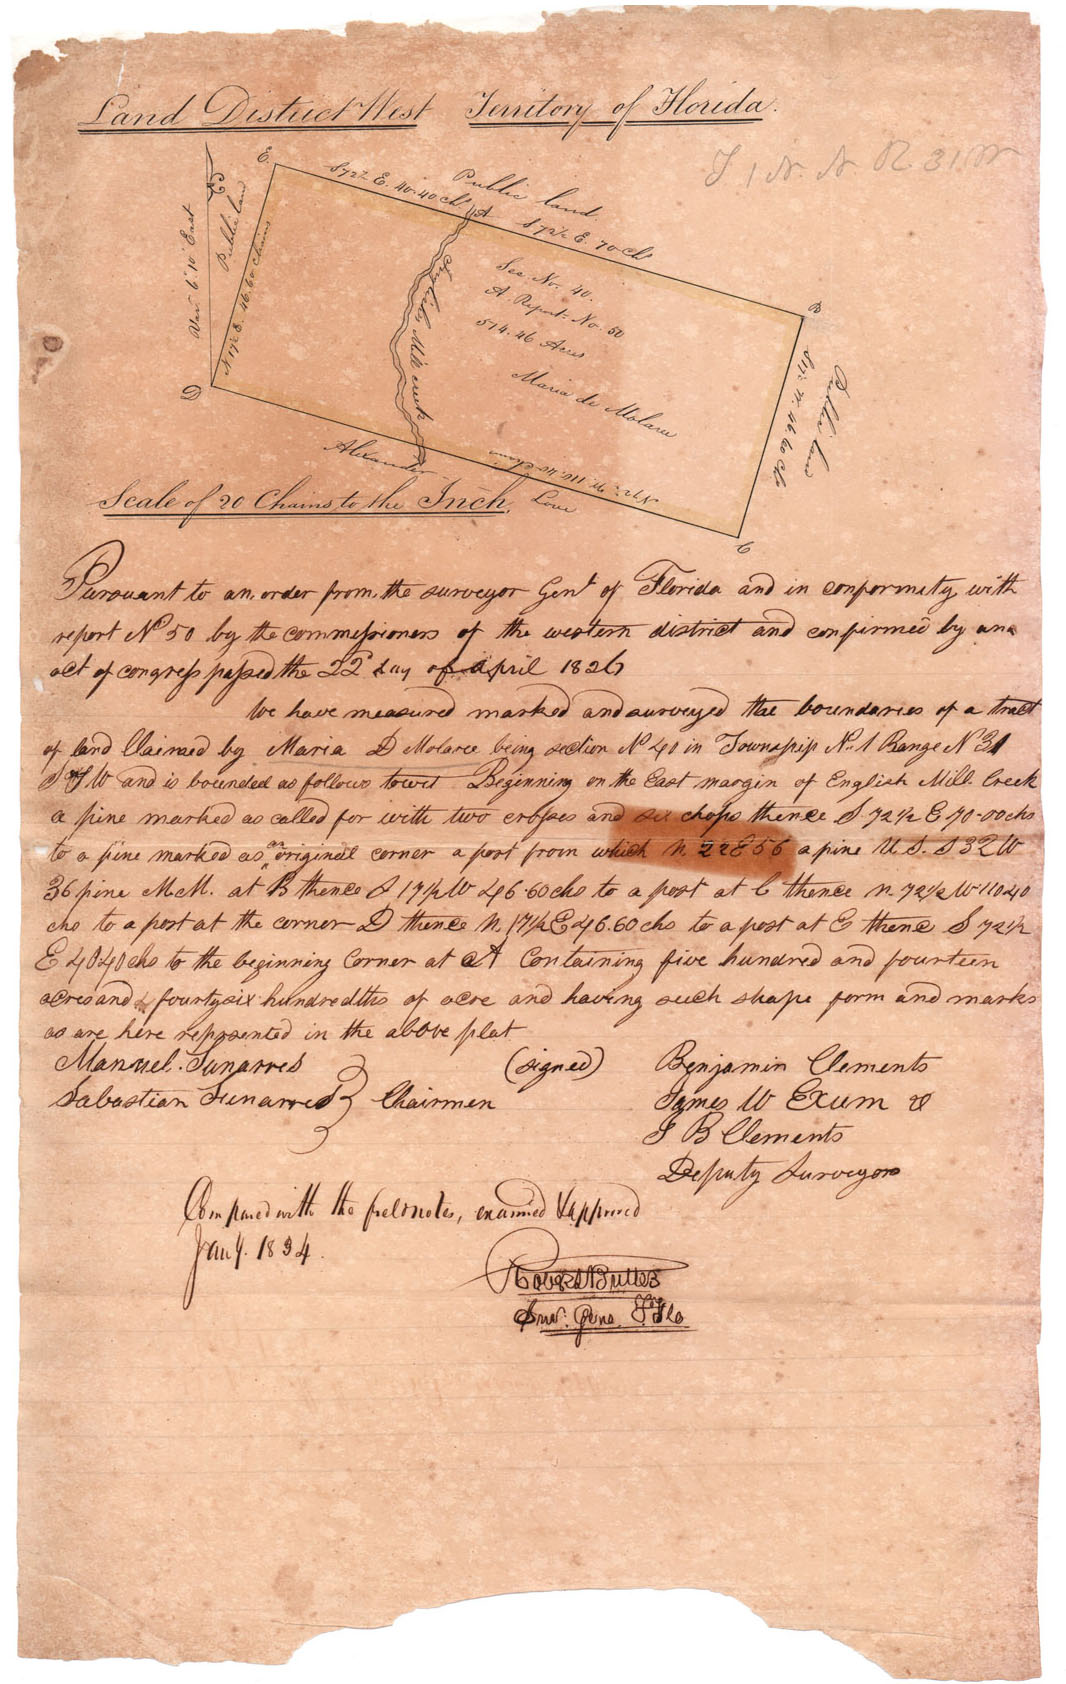 Land District West Territory of Florida.
T 1 N. R. 31 W
E.
S 72½ E. 40.40 chs
Public land
A
S 72½ E. 70 chs
B
Public land
Var: 6° 10' East
N 17½ E. 46.60 chains
English Mill creek
Sec. No. 40.
A. Report No. 50
514.46 Acres
Maria de Molaree
S 17½ W. 46.60 chs
Public land
D
Alexander Love
N 72½ W. 110.40 chains
C
Scale of 20 Chains to the Inch.
Pursuant to an order from the surveyor Genl of Florida and in conformity with
report No 50 by the commissioners of the western district and confirmed by an
act of congress passed the 22d day of april 1826
We have measured marked and surveyed the boundaries of a tract
of land Claimed by Maria D Molaree being section No 40 in Township No. 1 Range No 31
and is bounded as follows towit Beginning on the East margin of English Mill Creek
a pine marked as called for with two crosses and six chops thence S 72½ E 70.00 chs
to a pine marked as an original corner a post from which N 22 E 56 a pine U.S. S 32 W
36 pine M.M. at B thence S 17½ W 46.60 chs to a post at C thence N. 72½ W 110 40
chs to a post at the corner D thence N. 17½ E 46.60 chs to a post at E thence S 72½
E 40 40 chs to the beginning Corner at A Containing five hundred and fourteen
acres and fourty six hundredths of acre and having such shape form and marks
as are here reprsented in the above plat
Manuel. Sunarres (signed) Benjamin Clements
Sabastian Sunarres } Chairmen James W Exum &
J B Clements
Deputy Surveyors
Compared with the fieldnotes, examined & approved
Jany. 1834.
Robert Butler
Surv. Genl. T. Flo